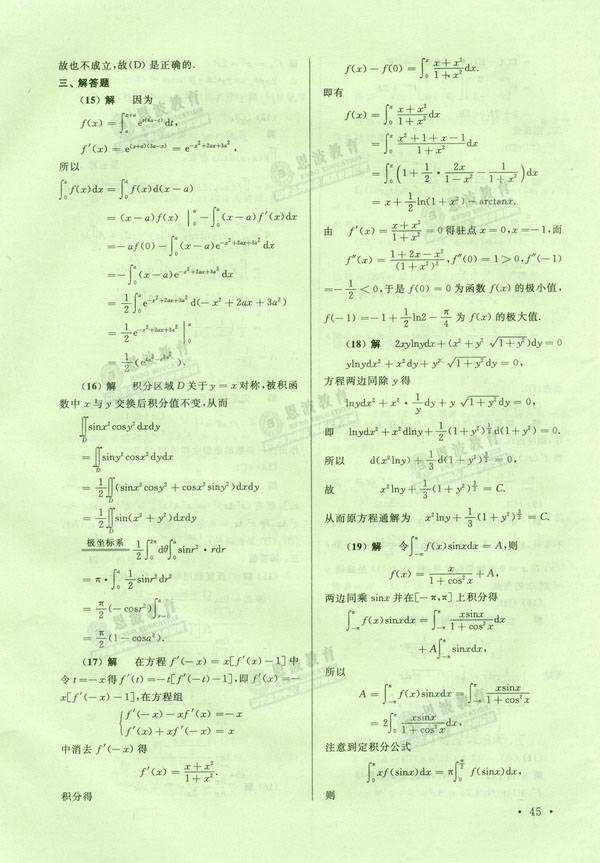 故也不成立,故(D)是正确的.
三、解答题
(15) 解 因为
f(x) = ∫_a^{x+a} e^{t(4a-t)}dt,
f′(x) = e^{(x+a)(3a-x)} = e^{-x²+2ax+3a²},
所以
∫_0^a f(x)dx = ∫_0^a f(x)d(x-a)
= (x-a)f(x) |_0^a - ∫_0^a (x-a)f′(x)dx
= -af(0) - ∫_0^a (x-a)e^{-x²+2ax+3a²}dx
= -∫_0^a (x-a)e^{-x²+2ax+3a²}dx
= 1/2 ∫_0^a e^{-x²+2ax+3a²} d(-x²+2ax+3a²)
= 1/2 e^{-x²+2ax+3a²} |_0^a
= 1/2 (e^{4a²} - e^{3a²}).
(16) 解 积分区域 D 关于 y = x 对称,被积函
数中 x 与 y 交换后积分值不变,从而
∬_D sinx²cosy²dxdy
= ∬_D siny²cosx²dydx
= 1/2 ∬_D (sinx²cosy² + cosx²siny²)dxdy
= 1/2 ∬_D sin(x²+y²)dxdy
极坐标系 1/2 ∫_0^{2π} dθ ∫_0^a sinr² · rdr
= π · ∫_0^a 1/2 sinr²dr²
= π/2 (-cosr²)|_{r=0}^a
= π/2 (1-cosa²).
(17) 解 在方程 f′(-x) = x[f′(x)-1] 中
令 t=-x 得 f′(t) = -t[f′(-t)-1],即 f′(x) =
-x[f′(-x)-1],在方程组
{ f′(-x) - xf′(x) = -x
f′(x) + xf′(-x) = x
中消去 f′(-x) 得
f′(x) = (x+x²)/(1+x²).
积分得
f(x) - f(0) = ∫_0^x (x+x²)/(1+x²) dx.
即有
f(x) = ∫_0^x (x+x²)/(1+x²) dx
= ∫_0^x (x²+1+x-1)/(1+x²) dx
= ∫_0^x (1 + 1/2 · 2x/(1-x²) - 1/(1+x²))dx
= x + 1/2 ln(1+x²) - arctanx.
由 f′(x) = (x+x²)/(1+x²) = 0 得驻点 x = 0, x = -1,而
f″(x) = (1+2x-x²)/(1+x²)², f″(0) = 1 > 0, f″(-1)
= -1/2 < 0,于是 f(0) = 0 为函数 f(x) 的极小值,
f(-1) = -1 + 1/2 ln2 - π/4 为 f(x) 的极大值.
(18) 解 2xylnydx + (x² + y² √(1+y²))dy = 0
ylnydx² + x²dy + y² √(1+y²)dy = 0
方程两边同除 y 得
lnydx² + x² · 1/y dy + y √(1+y²)dy = 0.
即 lnydx² + x²dlny + 1/2 (1+y²)^{1/2} d(1+y²) = 0.
所以 d(x²lny) + 1/3 d(1+y²)^{3/2} = 0,
故 x²lny + 1/3 (1+y²)^{3/2} = C.
从而原方程通解为 x²lny + 1/3 (1+y²)^{3/2} = C.
(19) 解 令∫_{-π}^π f(x)sinxdx = A,则
f(x) = x/(1+cos²x) + A,
两边同乘 sinx 并在[-π,π] 上积分得
∫_{-π}^π f(x)sinxdx = ∫_{-π}^π xsinx/(1+cos²x) dx
+ A∫_{-π}^π sinxdx,
所以
A = ∫_{-π}^π f(x)sinxdx = ∫_{-π}^π xsinx/(1+cos²x) dx
= 2∫_0^π xsinx/(1+cos²x) dx,
注意到定积分公式
∫_0^π xf(sinx)dx = π∫_0^{π/2} f(sinx)dx,
则
· 45 ·
恩波教育
恩波教育
恩波教育
恩波教育
恩波教育
恩波教育